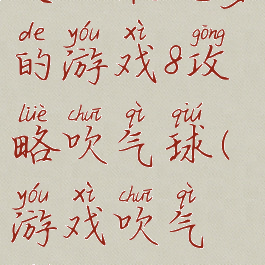 de yóu xì gōng
的游戏8攻
lüè chuī qì qiú
略吹气球(
yóu xì chuī qì
游戏吹气